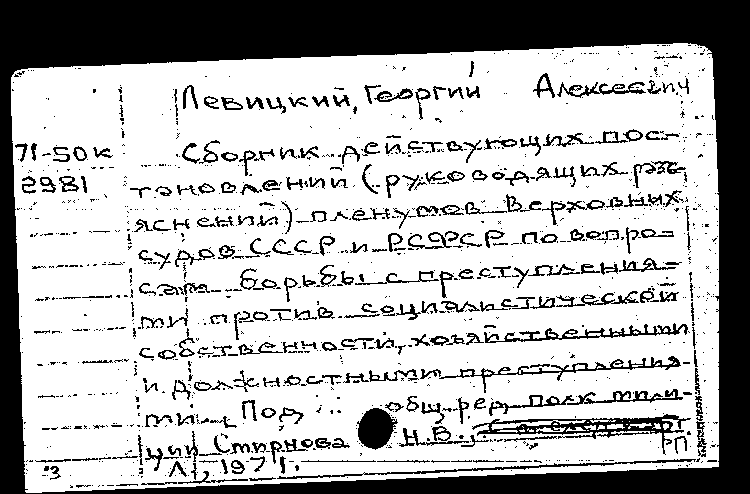 Левицкий, Георгий Алексеевич
71-50к Сборник действующих пос-
2981 тановлений (руководящих раз-
яснений) пленумов Верховных
судов СССР и РСФСР по вопро-
сам борьбы с преступления-
ми против социалистической
собственности, хозяйственными
и должностными преступления-
ми. Под общ. ред. полк. мили-
ции Смирнова Н.В.,
Л., 1971. РП